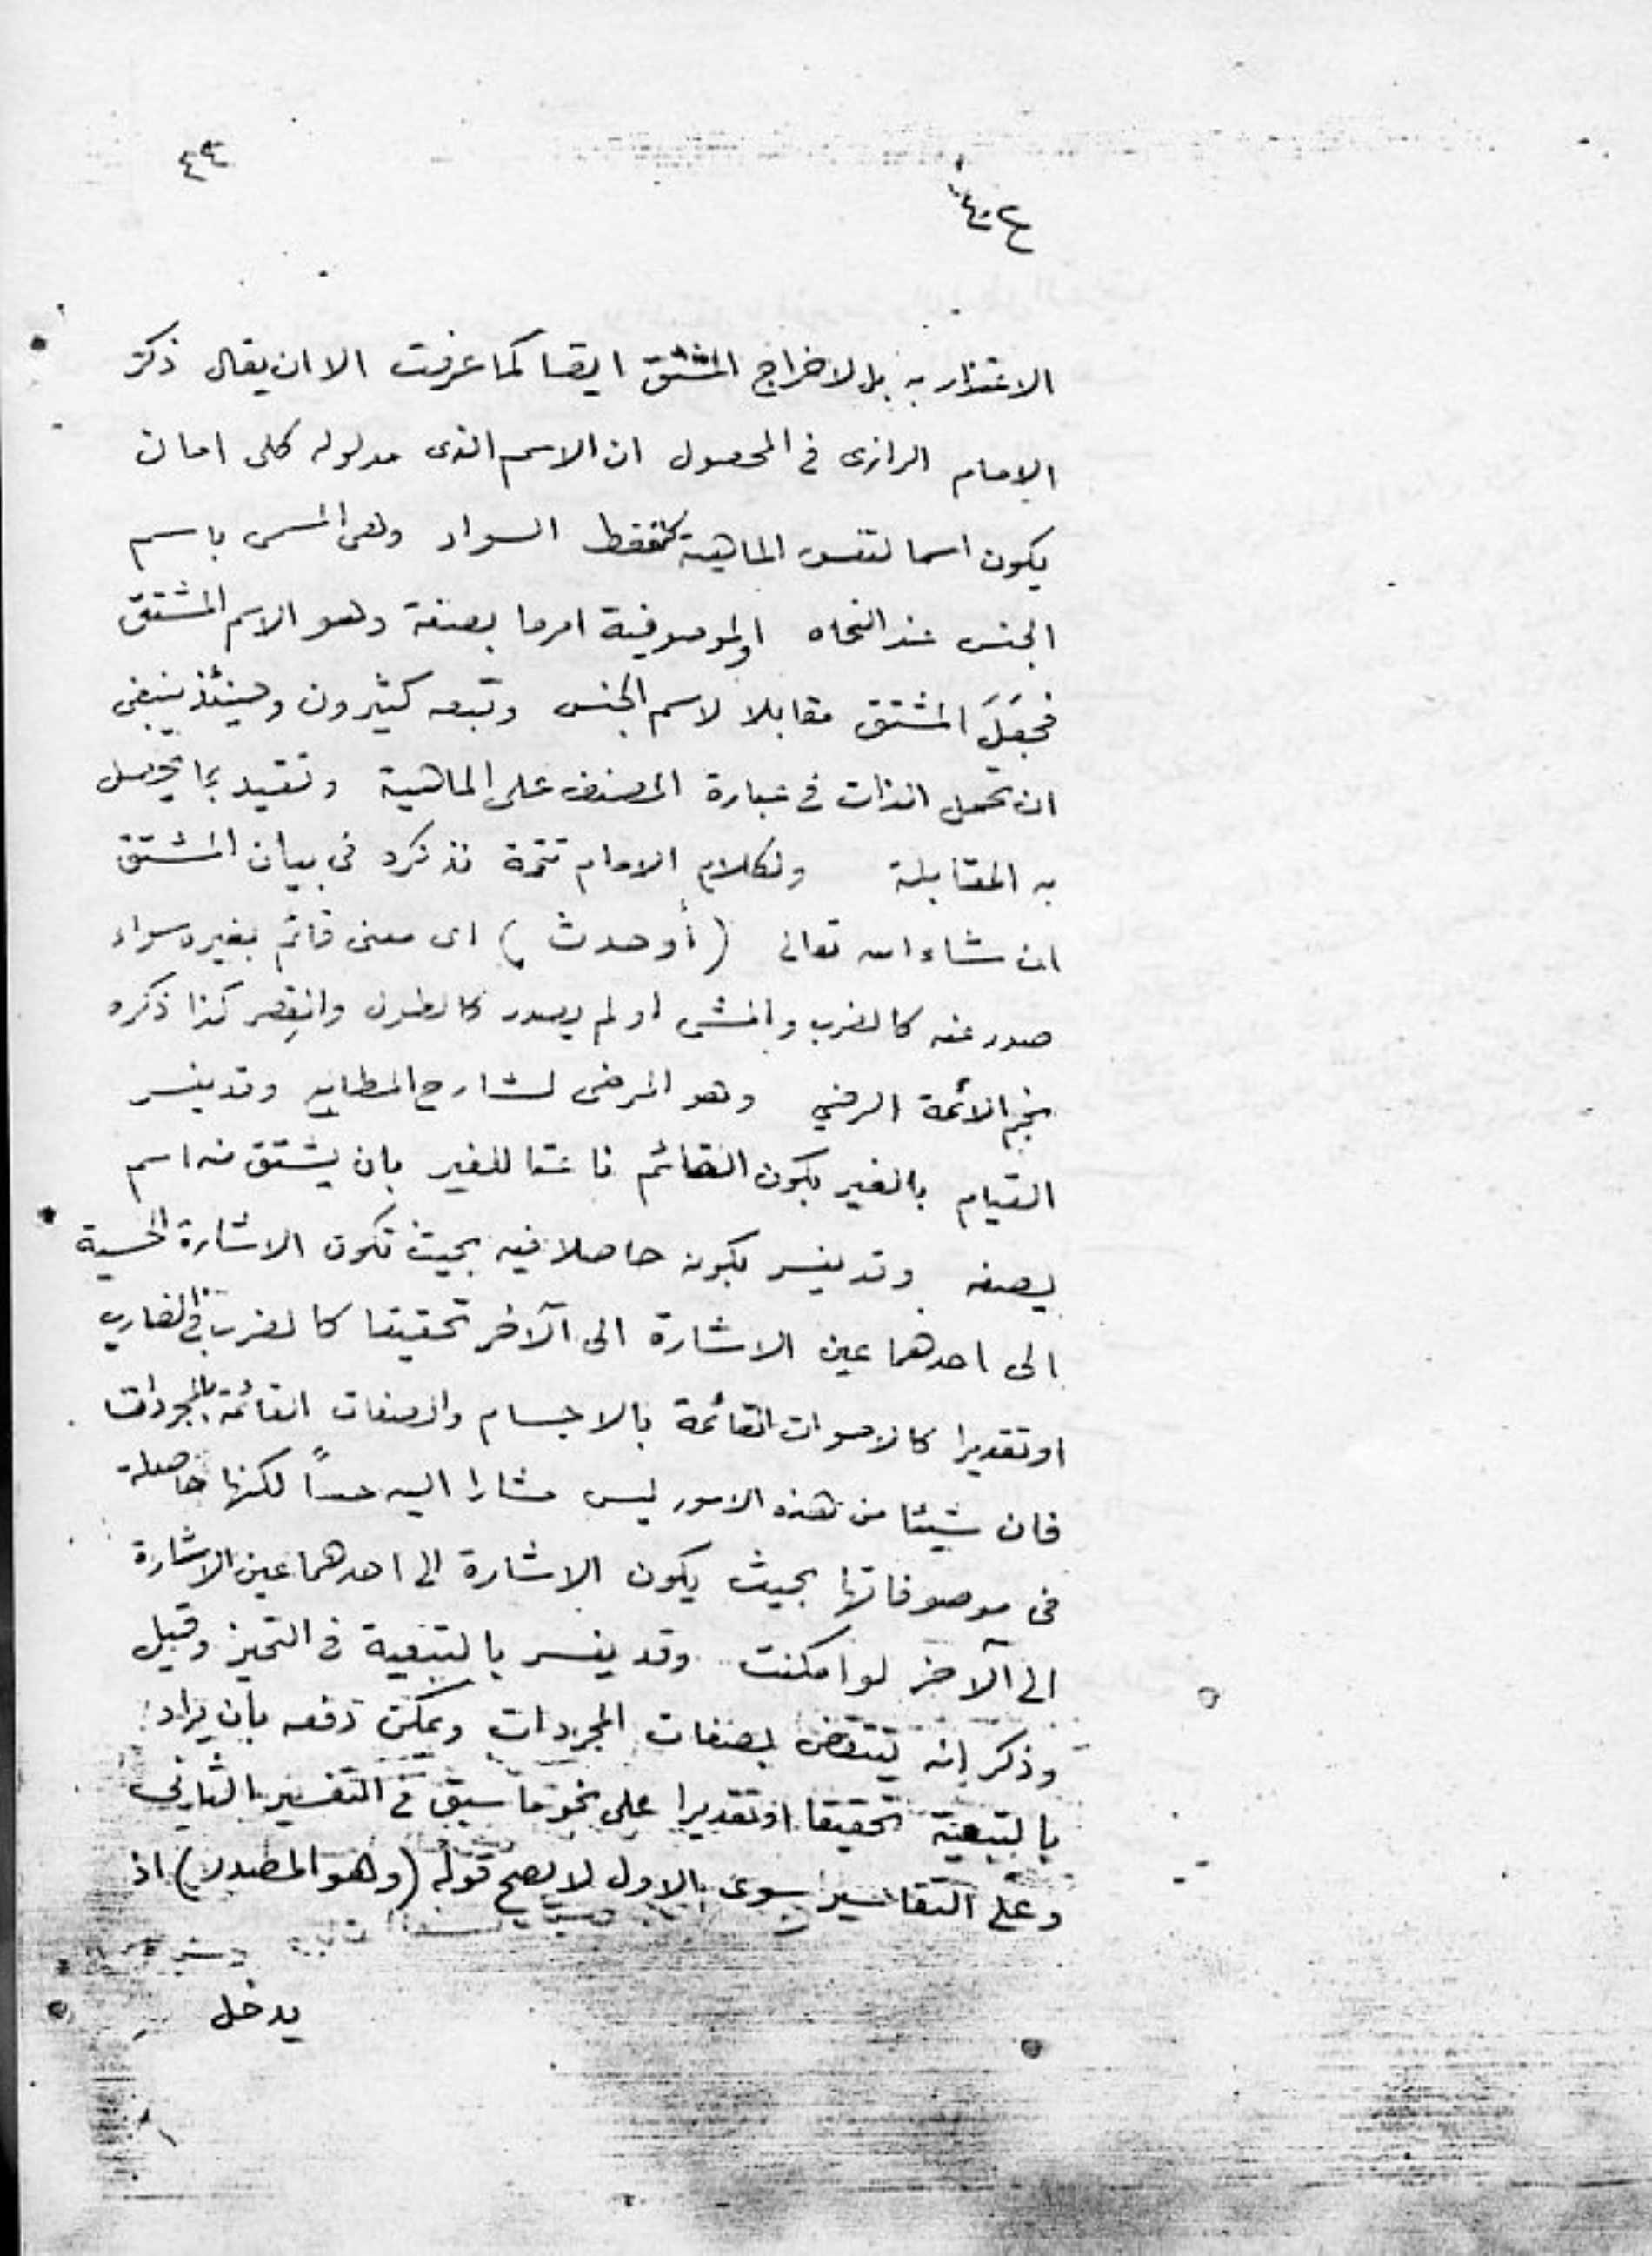 ٤٩
الاعتذار به بل لاخراج المشتق ايضا كما عرفت الا ان يقال ذكر
الامام الرازى فى المحصول ان الاسم الذى مدلوله كلى اما ان
يكون اسما لنفس الماهية كلفظ السواد وهى المسمى باسم
الجنس عند النحاه او لموصوفية امر ما بصفة وهو الاسم المشتق
فجعَلَ المشتق مقابلا لاسم الجنس وتبعه كثيرون وحينئذ ينبغى
ان تحمل الذات فى عبارة المصنف على الماهية وتقيد بما يحصل
به المقابلة ولكلام الامام تتمة نذكره فى بيان المشتق
ان شاء الله تعالى (أو حدث) اى معنى قائم بغيره سواء
صدر عنه كالضرب والمشى او لم يصدر كالطول والقِصر كذا ذكره
نجم الائمة الرضي وهو المرضى لشارح المطالع وقد يفسر
القيام بالغير بكون القائم ناعتا للغير بان يشتق منه اسم
يصفه وقد يفسر بكونه حاصلا فيه بحيث تكون الاشارة الحسية
الى احدهما عين الاشارة الى الآخر تحقيقا كالضرب فى الضارب
او تقديرا كالاصوات القائمة بالاجسام والصفات القائمة بالمجردات
فان شيئا من هذه الامور ليس مشارا اليه حساً لكنها حاصلة
فى موصوفاتها بحيث يكون الاشارة الى احدهما عين الاشارة
الى الآخر لو امكنت وقد يفسر بالتبعية فى التحيز وقيل
وذكر إنه ينتقض بصفات المجردات ويمكن دفعه بأن يراد
بالتبعية تحقيقا او تقديرا على نحو ما سبق فى التفسير الثانى
وعلى التفاسير سوى الاول لا يصح قوله (وهو المصدر) اذ
يدخل